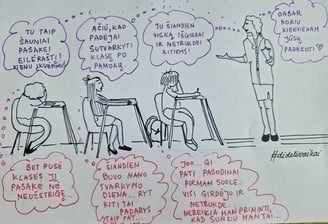 TU TAIP
ŠAUNIAI
PASAKEI
EILĖRAŠTĮ!
AČIŪ, KAD
PADĖJAI
SUTVARKYTI
KLASĘ PO
PAMOKŲ.
TU ŠIANDIEN
VISKĄ IŠGIRDAI
IR NETRUKDEI
KITIEMS!
DABAR
NORIU
KIEKVIENAM
JŪSŲ
PADĖKOTI
#didelivaikai
BET PUSĖ
KLASĖS JĮ
PASAKĖ NĖ
NEUŽSTRIGĘ...
ŠIANDIEN
BUVO MANO
TVARKYMO
DIENA... RYT
KITI TAI
PADARYS
JOO... GI
PATI PASODINAI
PIRMAM SUOLE.
VISI GIRDĖJO IR
NETRUKDĖ.
NEREIKIA MAN PRIMINTI,
KAD SUNKU MAN TAI...